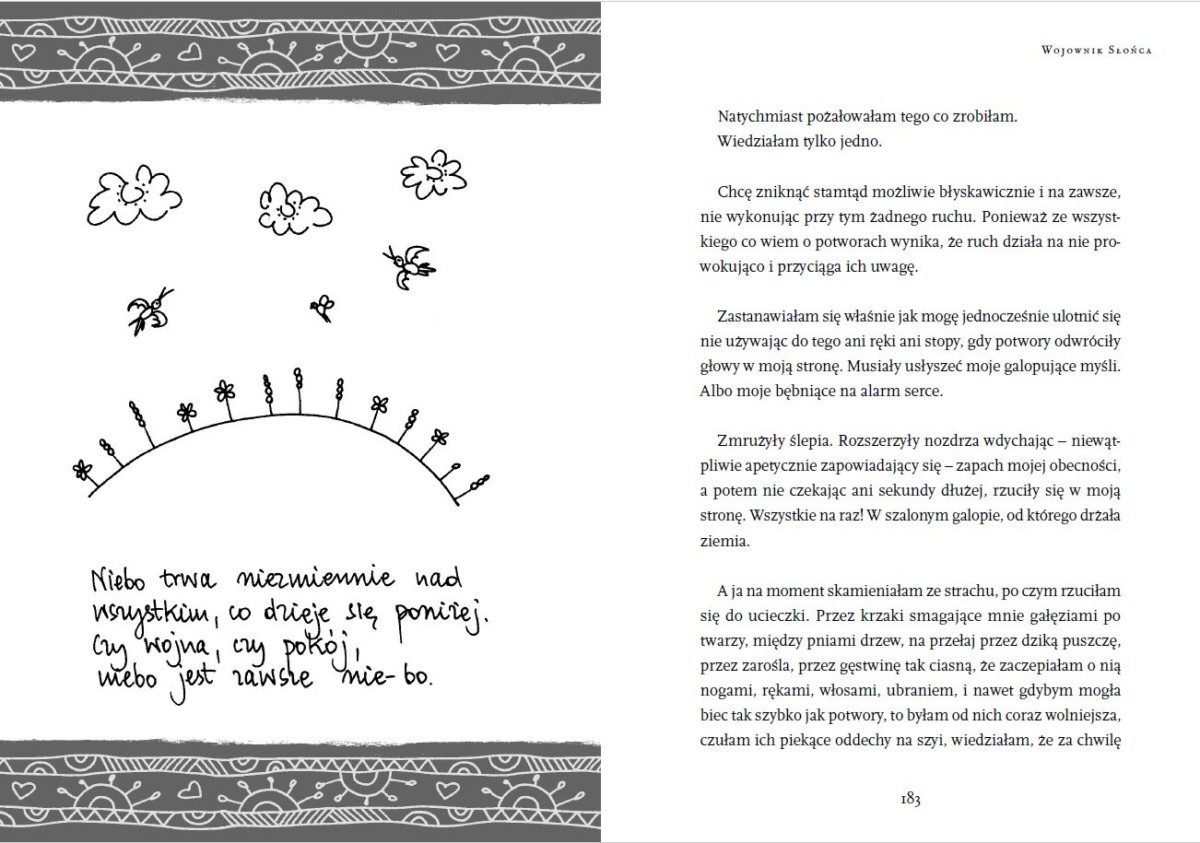 Niebo trwa niezmiennie nad
wszystkim, co dzieje się poniżej.
Czy wojna, czy pokój,
niebo jest zawsze nie-bo.
Wojownik Słońca
Natychmiast pożałowałam tego co zrobiłam.
Wiedziałam tylko jedno.
Chcę zniknąć stamtąd możliwie błyskawicznie i na zawsze,
nie wykonując przy tym żadnego ruchu. Ponieważ ze wszyst-
kiego co wiem o potworach wynika, że ruch działa na nie pro-
wokująco i przyciąga ich uwagę.
Zastanawiałam się właśnie jak mogę jednocześnie ulotnić się
nie używając do tego ani ręki ani stopy, gdy potwory odwróciły
głowy w moją stronę. Musiały usłyszeć moje galopujące myśli.
Albo moje bębniące na alarm serce.
Zmrużyły ślepia. Rozszerzyły nozdrza wdychając – niewąt-
pliwie apetycznie zapowiadający się – zapach mojej obecności,
a potem nie czekając ani sekundy dłużej, rzuciły się w moją
stronę. Wszystkie na raz! W szalonym galopie, od którego drżała
ziemia.
A ja na moment skamieniałam ze strachu, po czym rzuciłam
się do ucieczki. Przez krzaki smagające mnie gałęziami po
twarzy, między pniami drzew, na przełaj przez dziką puszczę,
przez zarośla, przez gęstwinę tak ciasną, że zaczepiałam o nią
nogami, rękami, włosami, ubraniem, i nawet gdybym mogła
biec tak szybko jak potwory, to byłam od nich coraz wolniejsza,
czułam ich piekące oddechy na szyi, wiedziałam, że za chwilę
183